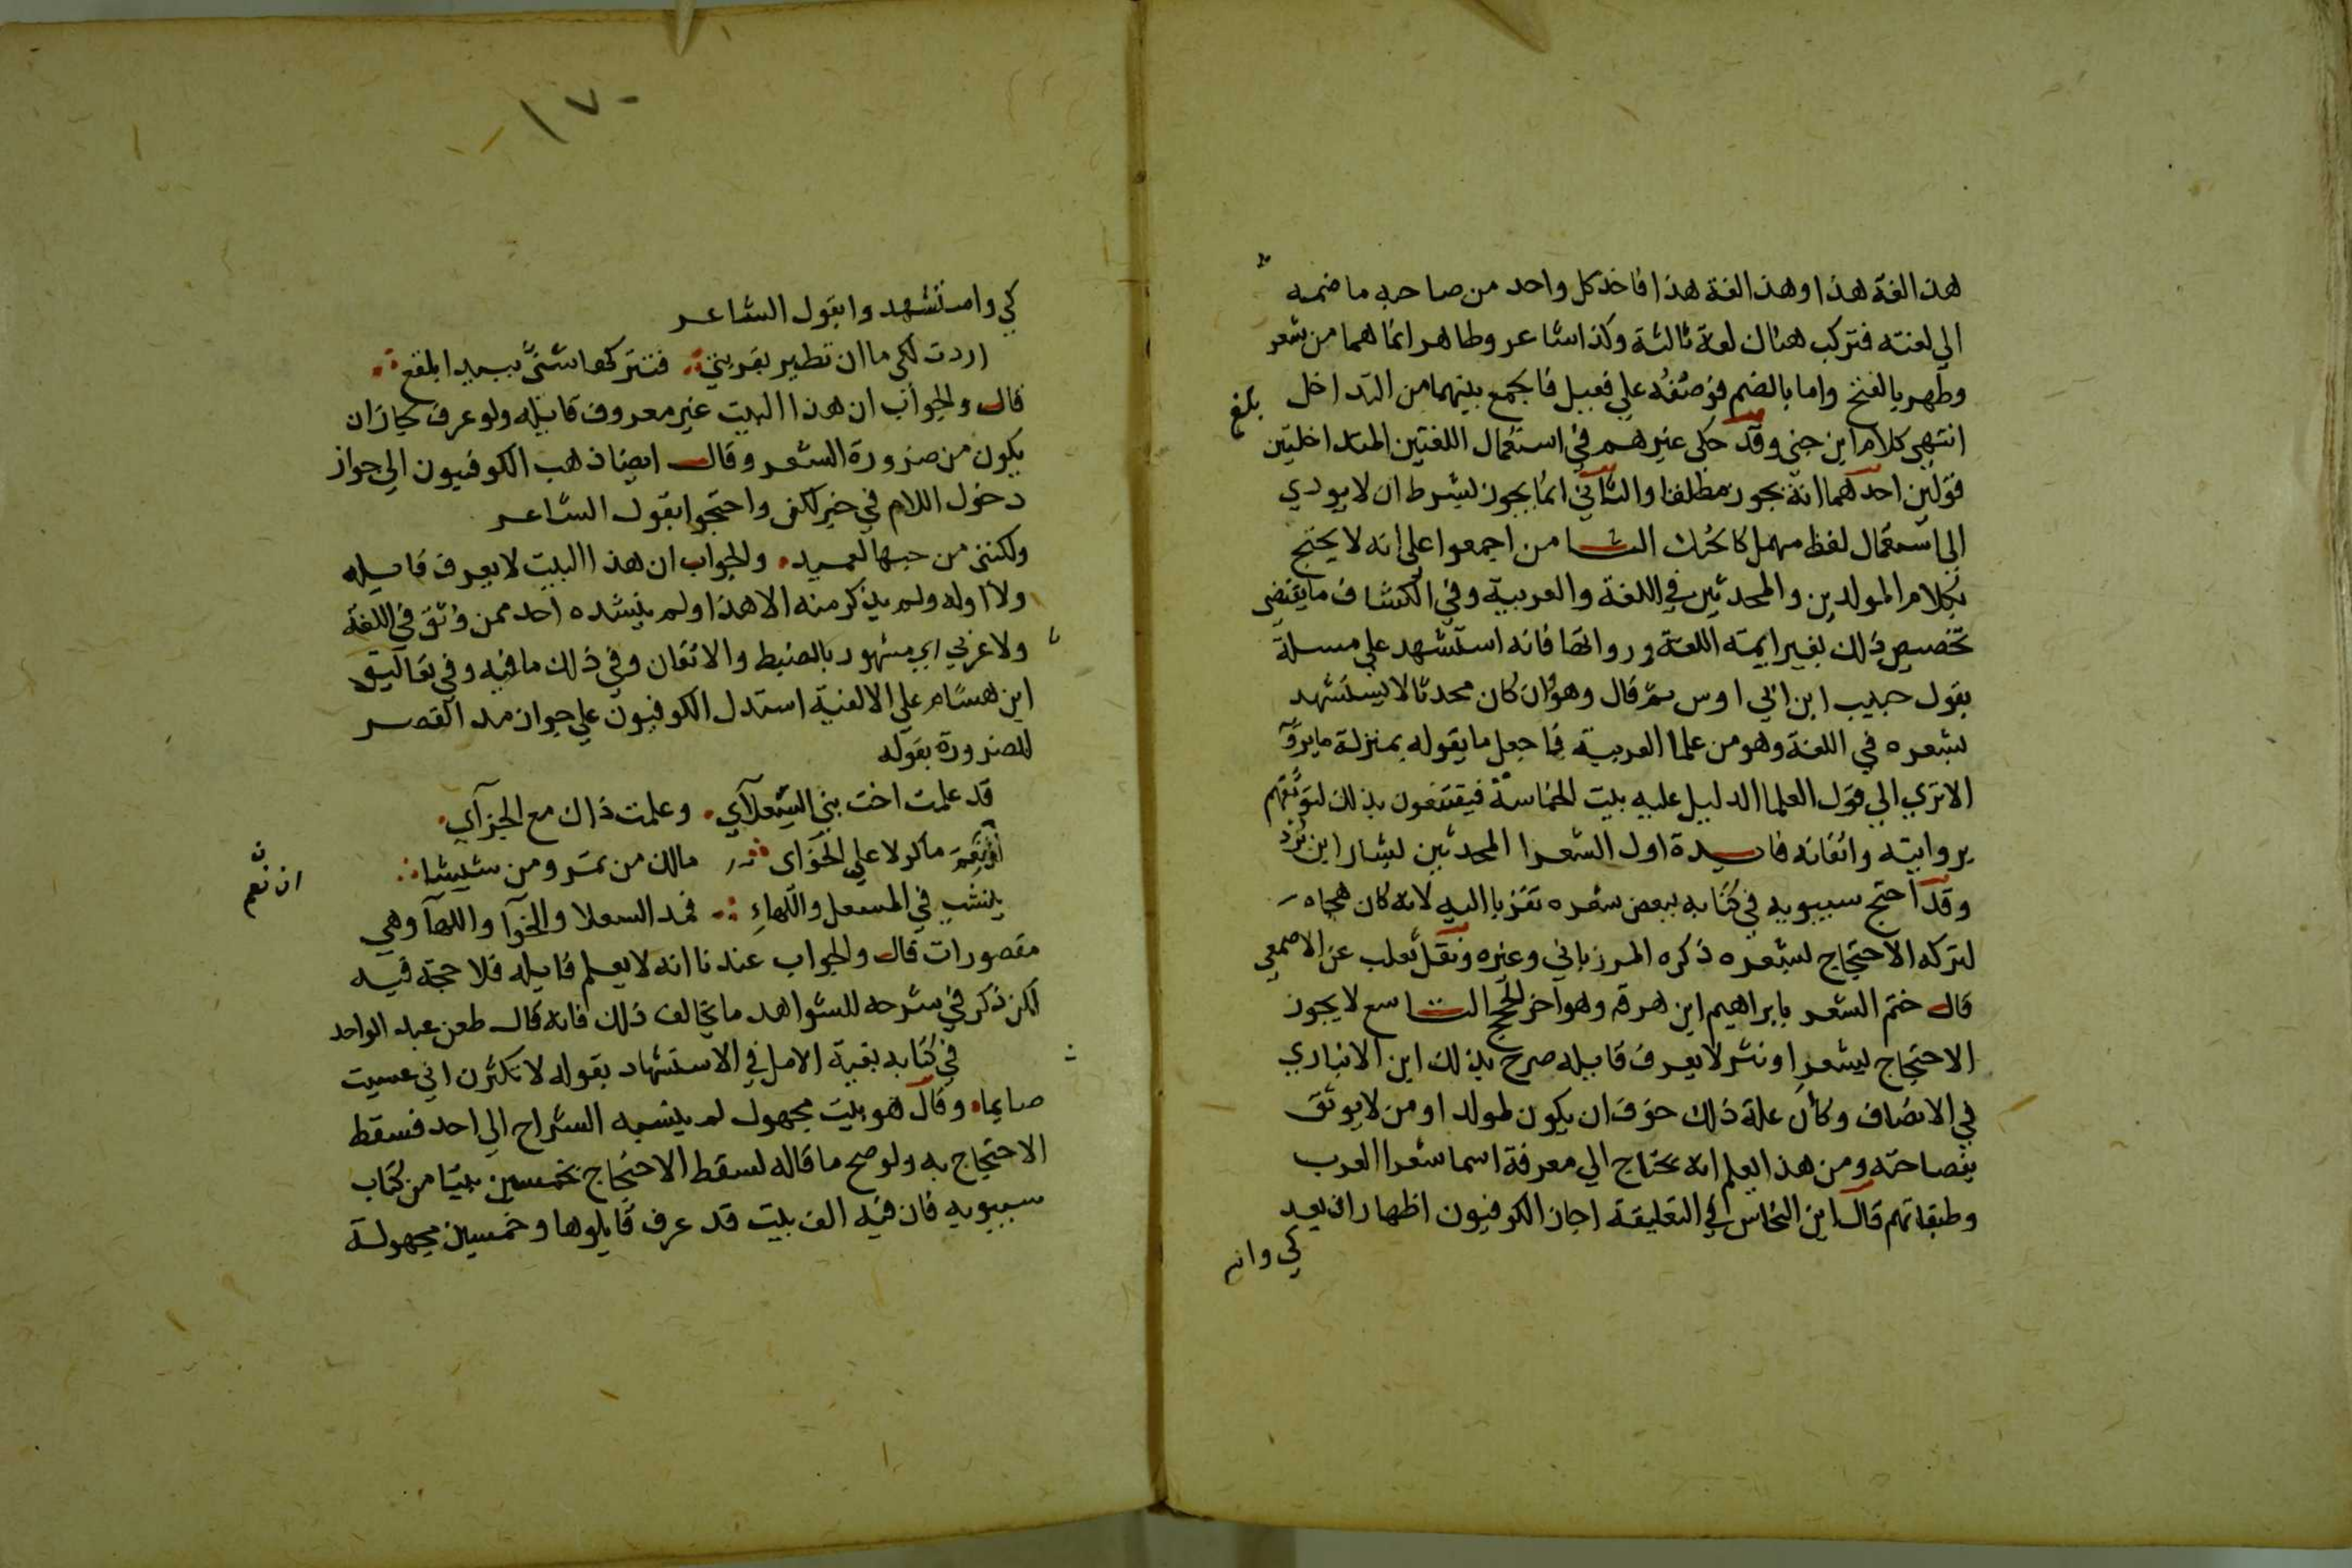 هذا لغة هذا وهذا لغة هذا فاخذ كل واحد من صاحبه ما ضمه
الي لغته فتركب هناك لغة ثالثة وكذا شاعر وطاهر انما هما من شعر
وطهر بالفتح واما بالضم فوصفه علي فعيل فالجمع بينهما من التداخل
بلغ
انتهي كلام ابن جني وقد حكي غيرهم في استعمال اللغتين المتداخلتين
قولين احدهما انه يجوز مطلقا والثاني انما يجوز بشرط ان لا يودي
الي استعمال لفظ مهمل كالحبك الثامن اجمعوا علي انه لا يحتج
بكلام المولدين والمحدثين في اللغة والعربية وفي الكشاف ما يقتضي
تخصيص ذلك بغير ايمة اللغة ورواتها فانه استشهد علي مسلة
بقول حبيب ابن ابي اوس ثم قال وهو وان كان محدثا لا يستشهد
بشعره في اللغة وهو من علما العربية فاجعل ما يقوله بمنزلة ما يرويه
الا تري الي قول العلما الدليل عليه بيت الحماسة فيقتنعون بذلك لتوثقهم
بروايته واتقانه فايدة اول الشعرا المحدثين بشار ابن برد
وقد احتج سيبويه في كتابه ببعض شعره تقربا اليه لانه كان هجاه
لتركه الاحتجاج بشعره ذكره المرزباني وغيره ونقل ثعلب عن الاصمعي
قال ختم الشعر بابراهيم ابن هرمه وهو آخر الحجج التاسع لا يجوز
الاحتجاج بشعر او نثر لا يعرف قايله صرح بذلك ابن الانباري
في الانصاف وكأن علة ذلك خوف ان يكون لمولد او من لا يوثق
بفصاحته ومن هذا يعلم انه يحتاج الي معرفة اسما شعرا العرب
وطبقاتهم قال ابن النحاس في التعليقة اجاز الكوفيون اظهار ان بعد
كي وا
١٧٠
كي واستشهدوا بقول الشاعر
اردت لكي ما ان تطير بقربتي فتتركها شنا ببيدا بلقع
قال والجواب ان هذا البيت غير معروف قايله ولو عرف لجاز ان
يكون من ضرورة الشعر وقال ايضا ذهب الكوفيون الي جواز
دخول اللام في خبر لكن واحتجوا بقول الشاعر
ولكنني من حبها لعميد والجواب ان هذا البيت لا يعرف قايله
ولا اوله ولم يذكر منه الا هذا ولم ينشده احد ممن وثق في اللغة
ولا عزي الي مشهور بالضبط والاتقان وفي ذلك ما فيه وفي تعاليق
ابن هشام علي الالفية استدل الكوفيون علي جواز مد القصر
للضرورة بقوله
قد علمت اخت بني السعلآي وعلمت ذاك مع الجزآي
ان نعم ماكولا علي الخوآي مالك من تمر ومن شيشا
ان نعم
ينشب في المسعل واللهاءِ فمد السعلا والخوآ واللهآ وهي
مقصورات قال والجواب عندنا انه لا يعلم قايله فلا حجة فيه
لكن ذكر في شرحه للشواهد ما يخالف ذلك فانه قال طعن عبد الواحد
في كتابه بغية الامل في الاستشهاد بقوله لا تكثرن اني عسيت
صايما وقال هو بيت مجهول لم ينسبه الشراح الي احد فسقط
الاحتجاج به ولو صح ما قاله لسقط الاحتجاج بخمسين بيتا من كتاب
سيبويه فان فيه الف بيت قد عرف قايلوها وخمسين مجهولة